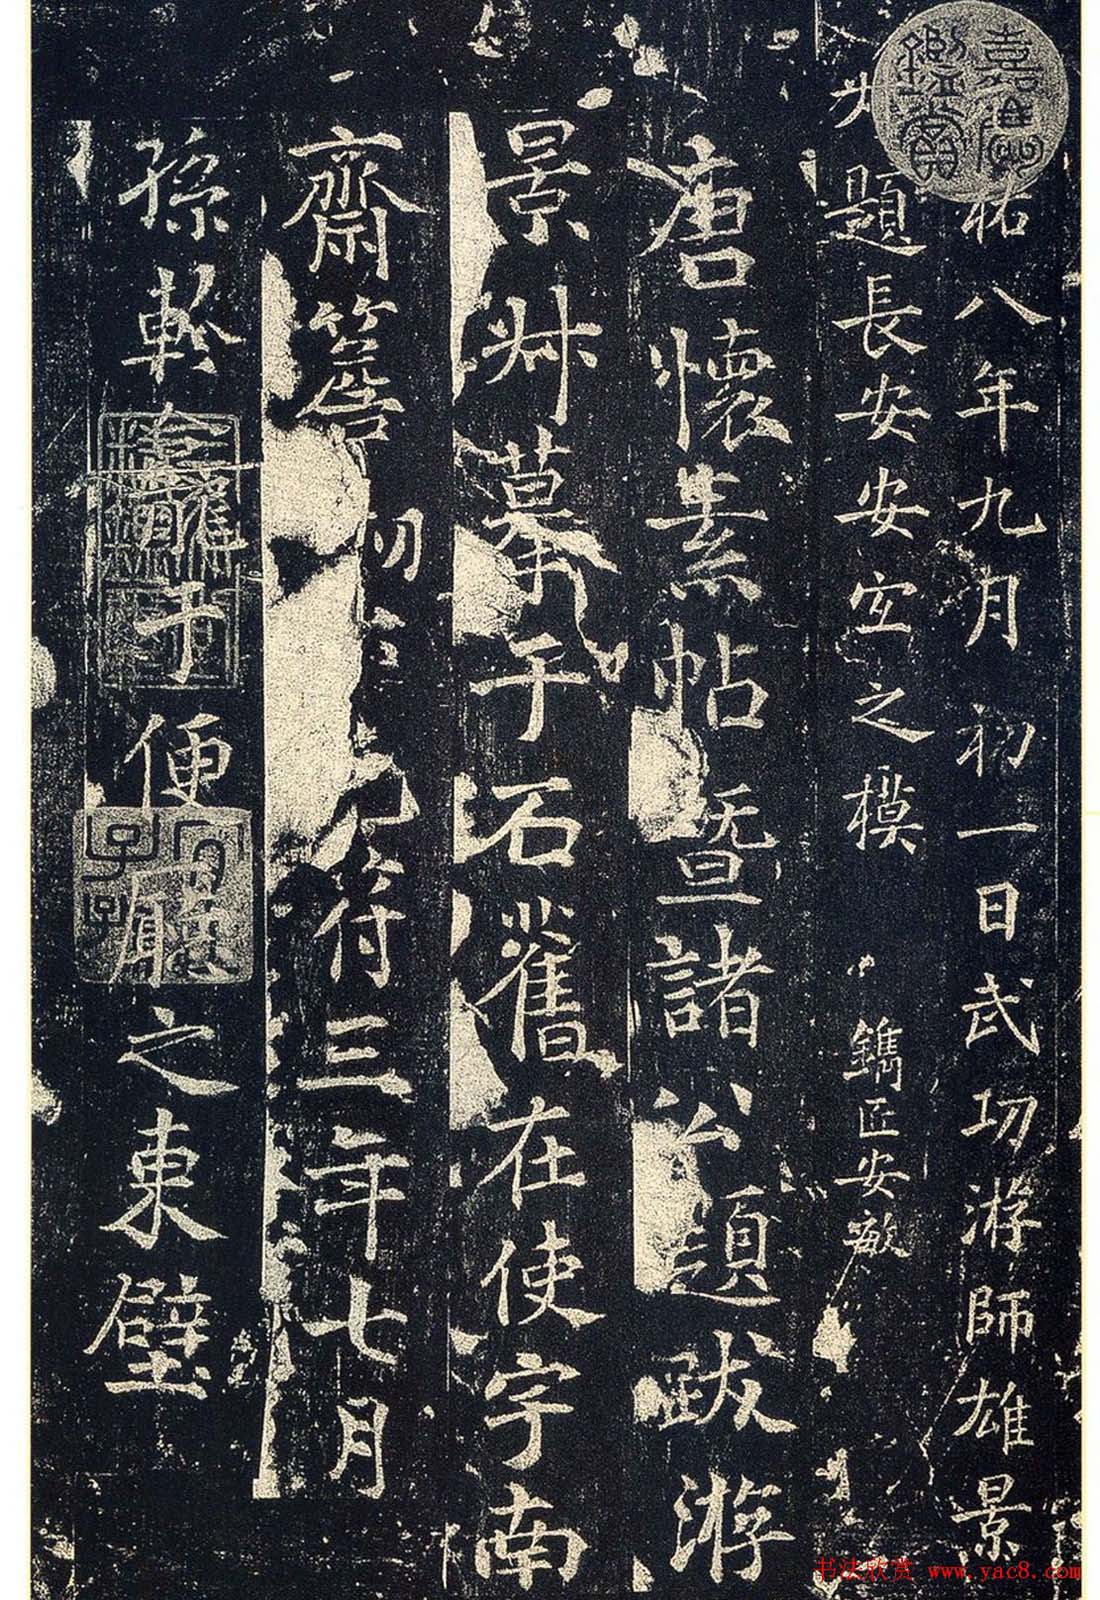 祐八年九月初一日武功游師雄景
叔題長安安宜之模 鐫匠安敏
唐懷素帖暨諸公題跋游
景叔摹于石舊在使宇南
齋簷 初 元符三年七月
孫軫 于便廳之東壁
书法欣赏 www.yac8.com